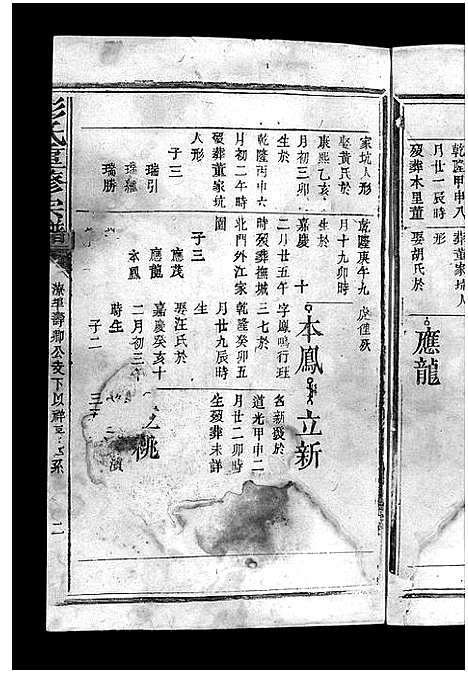 乾隆甲申八
月廿一辰時
歿葬木里董
葬董家坑人
形
娶胡氏於
應龍
家坑人形
娶黃氏於
康熙乙亥
月初三卯
生於
乾隆丙申六
月初二午時
歿葬董家坑
人形
子三
瑞引
瑞勝
乾隆庚午九
月十九卯時
生於
嘉慶十
二月廿五午
時歿葬撫城
北門外江家
園
子三
應茂
應龍
本鳳
本鳳
字鳳鳴行班
三七於
乾隆癸卯五
月廿九辰時
生
娶汪氏於
嘉慶癸亥十
二月初三午
時生
子二
立新
名新發於
道光甲申二
月廿二卯時
生歿葬未詳
桃
彭氏重修宗譜
壽卿公支下以祥
二